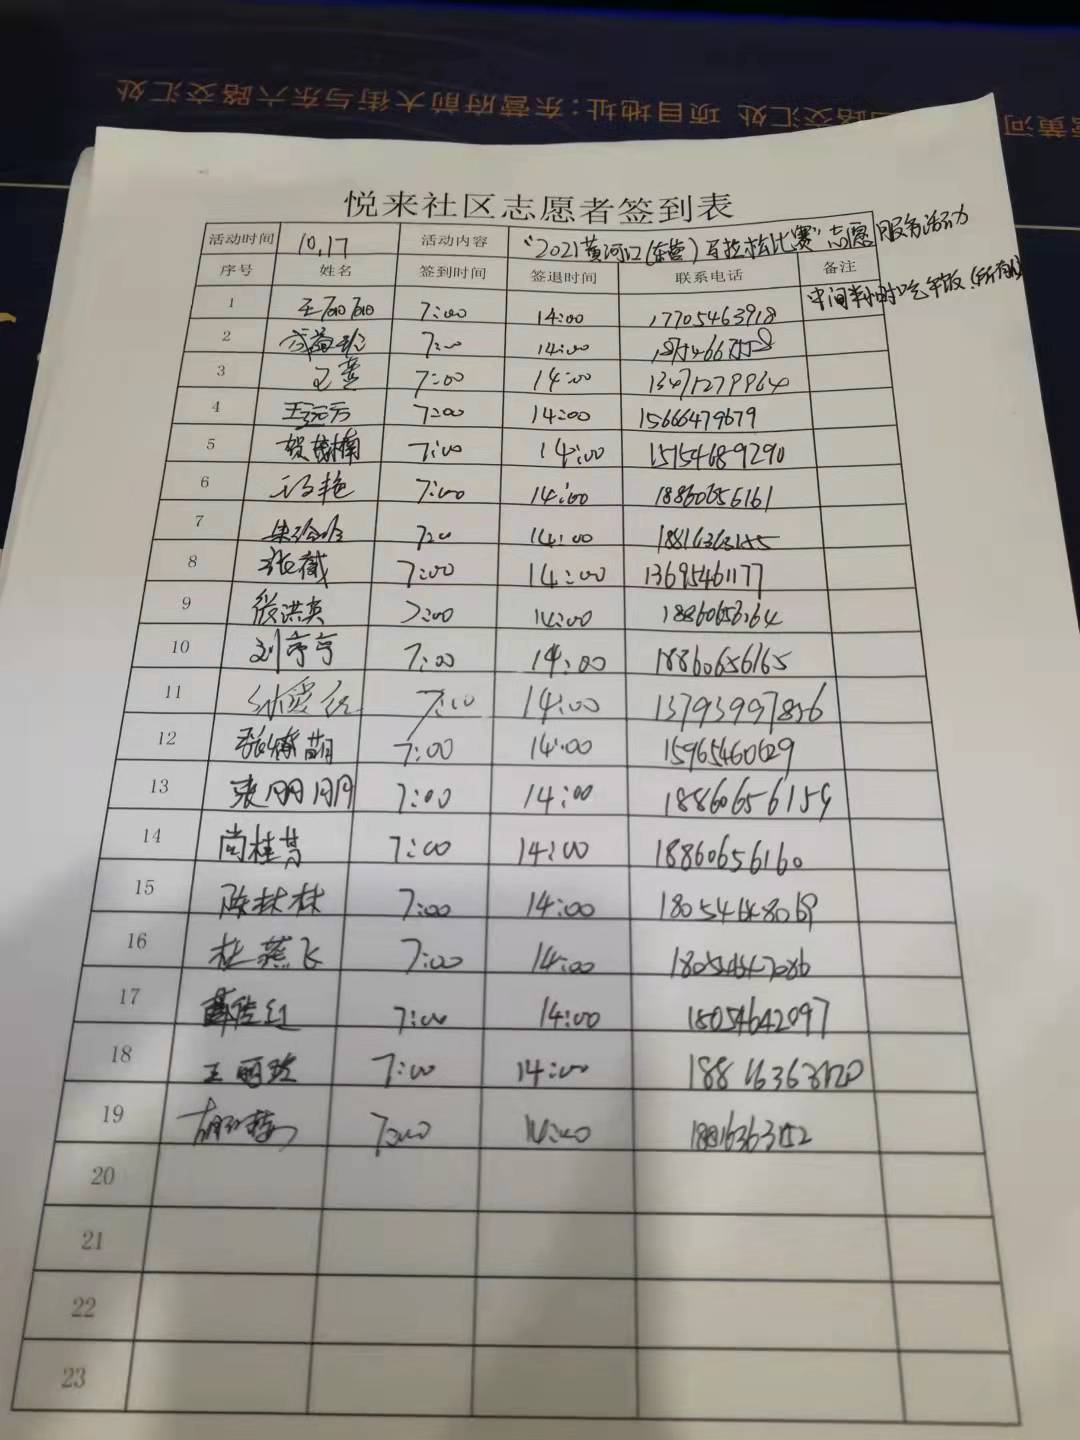 项目地址:东营府前大街与东六路交汇处
悦来社区志愿者签到表
活动时间 10.17 活动内容 “2021黄河口(东营)马拉松比赛”志愿服务活动
序号 姓名 签到时间 签退时间 联系电话 备注
1 王丽丽 7:00 14:00 17705463918 中间半小时吃午饭(所有人)
2 7:00 14:00
3 7:00 14:00 13471279964
4 7:00 14:00 15666479679
5 贺梅 7:00 14:00 15154689290
6 艳 7:00 14:00 18860656161
7 7:00 14:00 18816363155
8 张薇 7:00 14:00 13695461177
9 张洪英 7:00 14:00 18860656164
10 刘亭亭 7:00 14:00 18860656165
11 7:00 14:00 13793997836
12 张萌 7:00 14:00 15965460629
13 张朋朋 7:00 14:00 18860656159
14 尚桂芳 7:00 14:00 18860656160
15 陈林林 7:00 14:00 18054648069
16 杜燕飞 7:00 14:00 18054647086
17 薛红 7:00 14:00 18054642097
18 王丽珍 7:00 14:00
19 7:00 14:00 18816363152
20
21
22
23